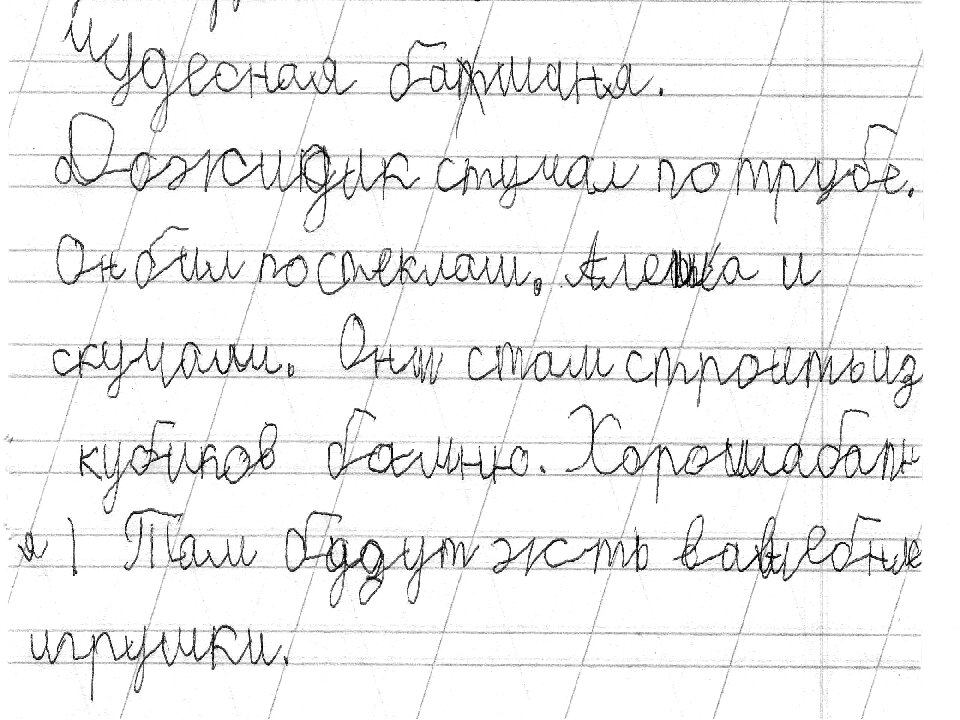 Чудесная бапшаня.
Дожидик стучал по трубе.
Он бил постеклам. Алёшка и
скучали. Они стали строитьиз
кубиков башню. Хорошабашн
я! Там буддут жсть вавшебные
игрушки.